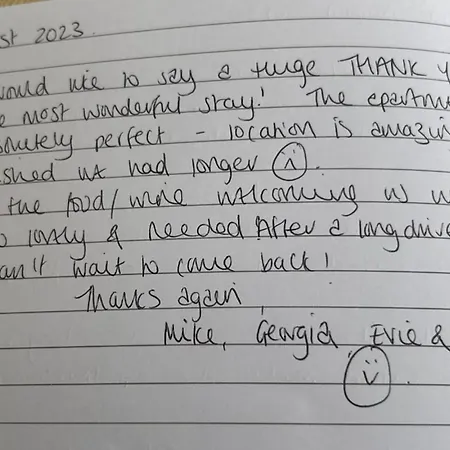 st 2023.
would like to say a huge THANK Y
e most wonderful stay! The apartme
solutely perfect - location is amazin
shed we had longer
the food/wine welcoming us w
o lovely & needed after a long drive
an't wait to come back!
Thanks again,
Mike, Georgia Evie &